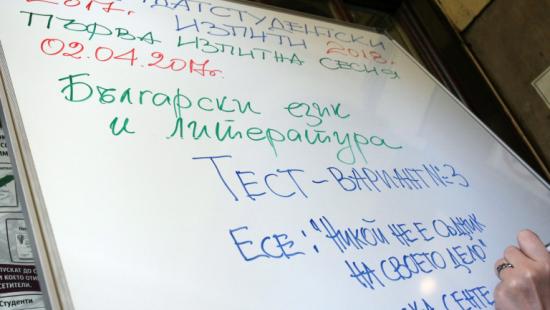 2017г.
ДАТСТУДЕНТСКИ
ИЗПИТИ 2018г.
ПЪРВА ИЗПИТНА СЕСИЯ
02.04.2017г.
Български език
и литература
ТЕСТ-ВАРИАНТ №3
ЕСЕ: "НИКОЙ НЕ Е СЪДНИК
НА СВОЕТО ДЕЛО"
СЕНТЕ
ПУСКАТ ДО
И КОЕТО
СЕТИТЕЛИ.
Студенти